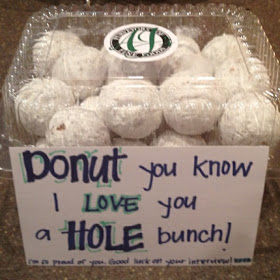 DONUT you know
I LOVE you
a HOLE bunch!
I'm so proud of you. Good luck on your interview!